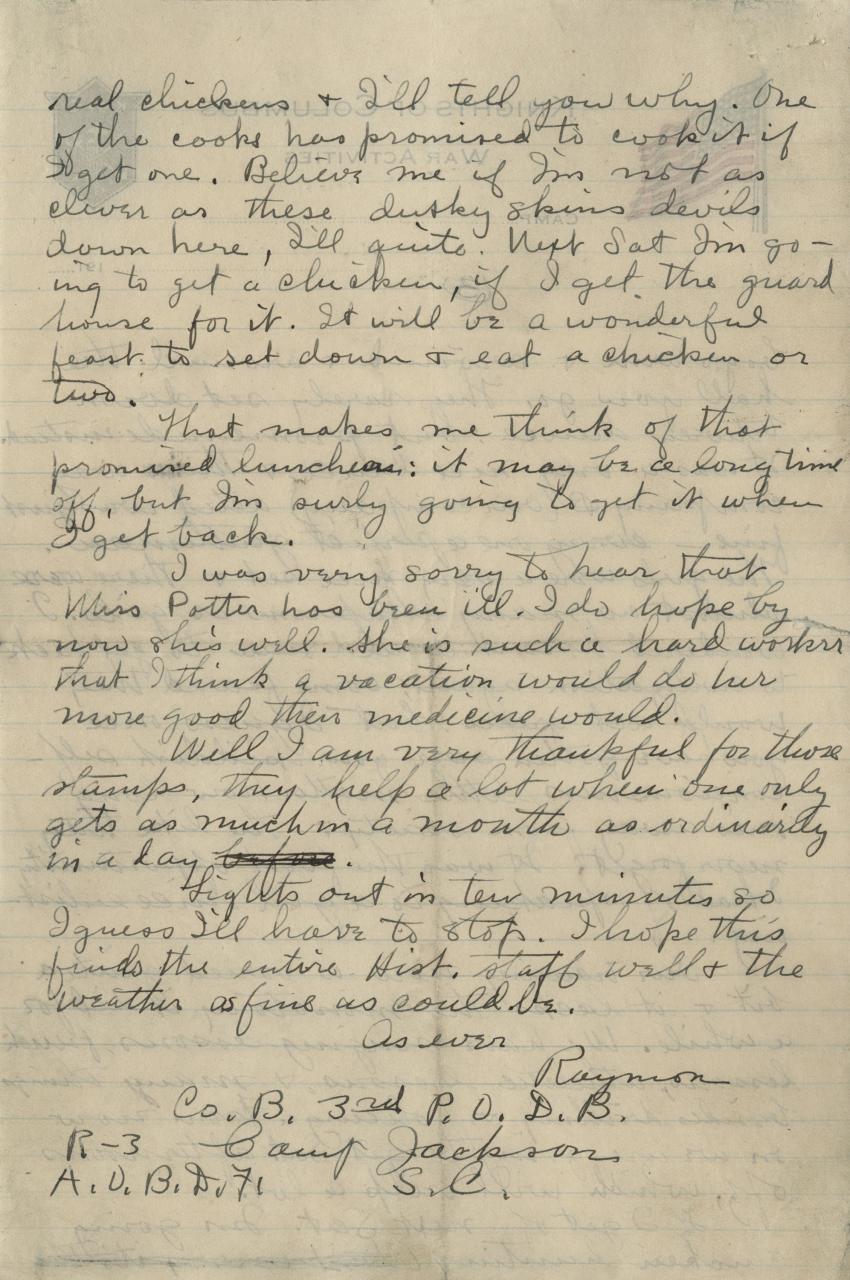 real chickens & I'll tell you why. One
of the cooks has promised to cook it if
I get one. Believe me if I'm not as
clever as these dusky skins devils
down here, I'll quite. Next Sat I'm go-
ing to get a chicken, if I get the guard
house for it. It will be a wonderful
feast to set down & eat a chicken or
two.
That makes me think of that
promised luncheon: it may be a long time
off, but I'm surly going to get it when
I get back.
I was very sorry to hear that
Miss Potter has been ill. I do hope by
now she's well. She is such a hard worker
that I think a vacation would do her
more good then medicine would.
Well I am very thankful for those
stamps, they help a lot when one only
gets as much in a month as ordinarily
in a day before.
Lights out in ten minutes so
I guess I'll have to stop. I hope this
finds the entire Hist. staff well & the
weather as fine as could be.
As ever
Raymon
Co. B. 3rd P.O.D.B.
R-3 Camp Jackson
A.O.B.D. 71 S.C.
KNIGHTS OF COLUMBUS
WAR ACTIVITIES
CAMP